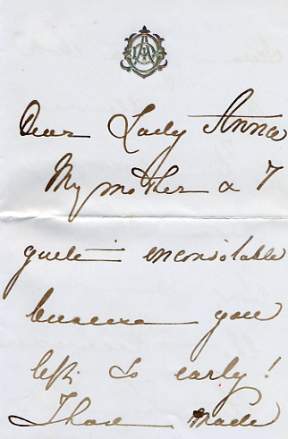 Dear Lady Anna
My mother & I
quite inconsolable
because you
left so early!
I had made